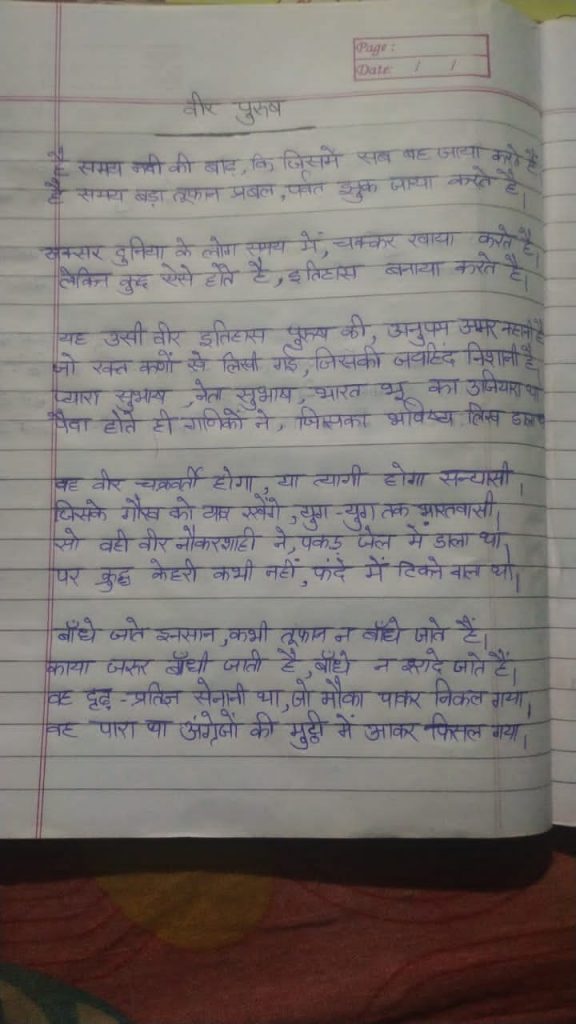 Page :
Date / /
वीर पुरुष
है समय नदी की बाढ़, कि जिसमें सब बह जाया करते हैं
है समय बड़ा तूफान प्रबल, पर्वत झुक जाया करते है।
अक्सर दुनिया के लोग समय में, चक्कर खाया करते है।
लेकिन कुछ ऐसे होते है, इतिहास बनाया करते है।
यह उसी वीर इतिहास पुरुष की, अनुपम अमर कहानी है
जो रक्त कणों से लिखी गई, जिसकी जयहिंद निशानी है
प्यारा सुभाष, नेता सुभाष, भारत भू का उजियारा था
पैदा होते ही गणिकों ने, जिसका भविष्य लिख डाला
वह वीर चक्रवर्ती होगा, या त्यागी होगा सन्यासी।
जिसके गौरव को याद रखेंगे, युग-युग तक भारतवासी।
सो वही वीर नौकरशाही ने, पकड़ जेल में डाला था,
पर क्रुद्ध केहरी कभी नहीं, फंदे में टिकने वाल था।
बाँधे जाते इनसान, कभी तूफान न बाँधे जाते हैं।
काया जरुर बाँधी जाती है, बाँधे न इरादे जाते हैं।
वह दृढ़-प्रतिज्ञ सेनानी था, जो मौका पाकर निकल गया।
वह पारा था अंग्रेजों की मुट्ठी में आकर फिसल गया।